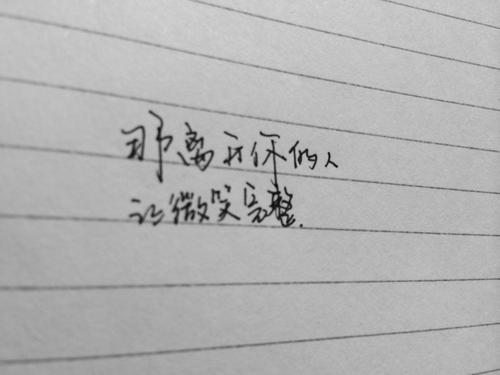 那离开你的人
让微笑完整.